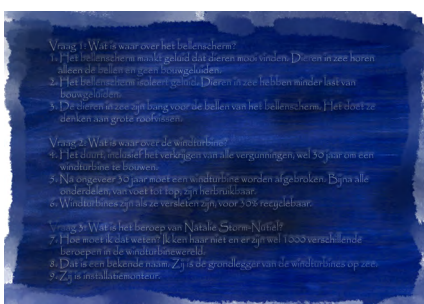 Vraag 1: Wat is waar over het bellenscherm?
1. Het bellenscherm maakt geluid dat dieren mooi vinden. Dieren in zee horen
alleen de bellen en geen bouwgeluiden.
2. Het bellenscherm isoleert geluid. Dieren in zee hebben minder last van
bouwgeluiden.
3. De dieren in zee zijn bang voor de bellen van het bellenscherm. Het doet ze
denken aan grote roofvissen.
Vraag 2: Wat is waar over de windturbine?
4. Het duurt, inclusief het verkrijgen van alle vergunningen, wel 30 jaar om een
windturbine te bouwen.
5. Na ongeveer 30 jaar moet een windturbine worden afgebroken. Bijna alle
onderdelen, van voet tot top, zijn herbruikbaar.
6. Windturbines zijn als ze versleten zijn, voor 30% recyclebaar.
Vraag 3: Wat is het beroep van Natalie Storm-Nutiel?
7. Hoe moet ik dat weten? Ik ken haar niet en er zijn wel 1000 verschillende
beroepen in de windturbinewereld.
8. Dat is een bekende naam. Zij is de grondlegger van de windturbines op zee.
9. Zij is installatiemonteur.